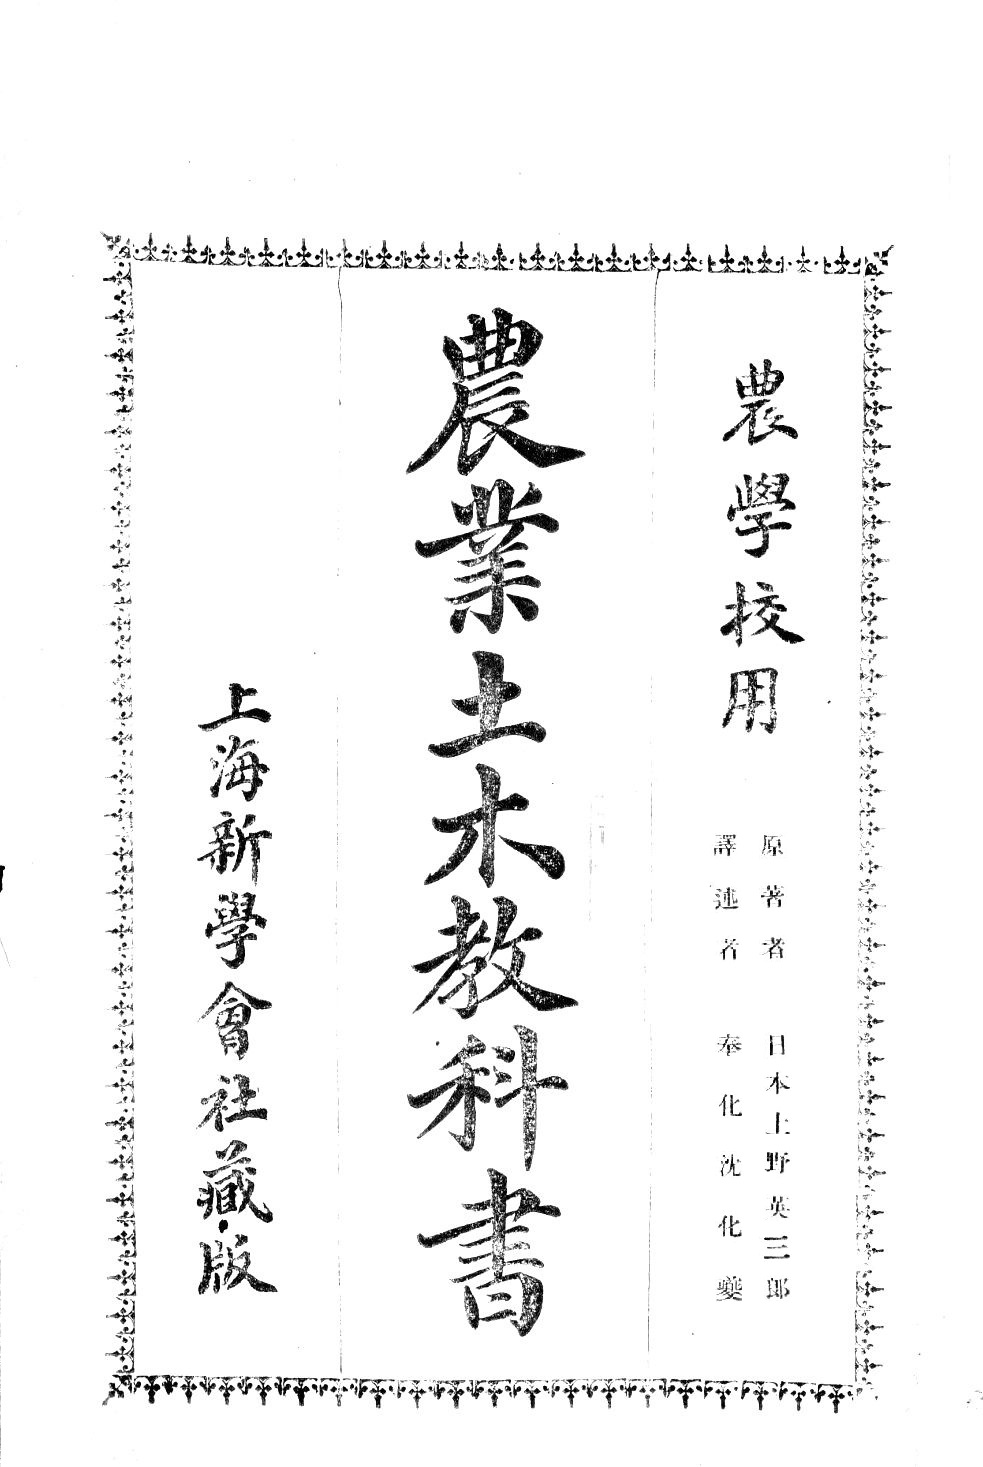 農學校用
原著者 日本上野英三郎
譯述者 奉化沈化夔
農業土木教科書
上海新學會社藏版